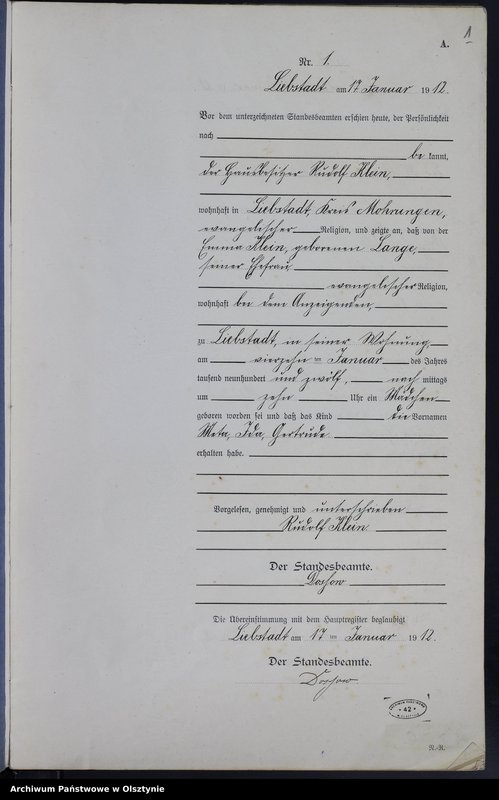 1
A.
Nr. 1.
Liebstadt am 17. Januar 1912.
Vor dem unterzeichneten Standesbeamten erschien heute, der Persönlichkeit
nach
be kannt,
der Hausbesitzer Rudolf Klein,
wohnhaft in Liebstadt, Kreis Mohrungen,
evangelischer Religion, und zeigte an, daß von der
Emma Klein, geborenen Lange,
seiner Ehefrau
evangelischer Religion,
wohnhaft bei dem Anzeigenden,
zu Liebstadt, in seiner Wohnung,
am vierzehn ten Januar des Jahres
tausend neunhundert und zwölf, nach mittags
um zehn Uhr ein Mädchen
geboren worden sei und daß das Kind die Vornamen
Meta, Ida, Gertrude
erhalten habe.
Vorgelesen, genehmigt und unterschrieben
Rudolf Klein
Der Standesbeamte.
Die Übereinstimmung mit dem Hauptregister beglaubigt
Liebstadt am 17 ten Januar 1912.
Der Standesbeamte.
42
Archiwum Państwowe w Olsztynie